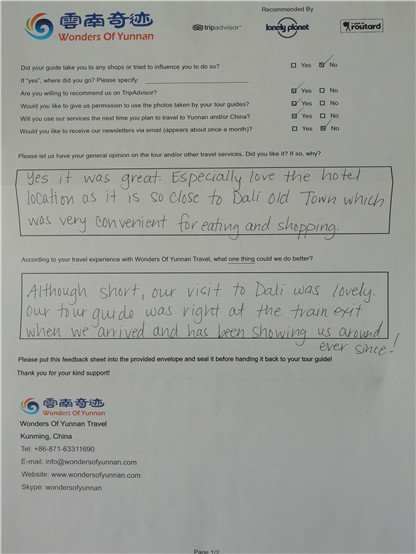 Recommended By
雲南奇迹
Wonders Of Yunnan
tripadvisor
lonely planet
routard
Did your guide take you to any shops or tried to influence you to do so? Yes No
If "yes", where did you go? Please specify:
Are you willing to recommend us on TripAdvisor? Yes No
Would you like to give us permission to use the photos taken by your tour guides? Yes No
Will you use our services the next time you plan to travel to Yunnan and/or China? Yes No
Would you like to receive our newsletters via email (appears about once a month)? Yes No
Please let us have your general opinion on the tour and/or other travel services. Did you like it? If so, why?
Yes it was great. Especially love the hotel
location as it is so close to Dali Old Town which
was very convenient for eating and shopping.
According to your travel experience with Wonders Of Yunnan Travel, what one thing could we do better?
Although short, our visit to Dali was lovely.
Our tour guide was right at the train exit
when we arrived and has been showing us around
ever since!
Please put this feedback sheet into the provided envelope and seal it before handing it back to your tour guide!
Thank you for your kind support!
雲南奇迹
Wonders Of Yunnan
Wonders Of Yunnan Travel
Kunming, China
Tel: +86-871-63311690
E-mail: info@wondersofyunnan.com
Website: www.wondersofyunnan.com
Skype: wondersofyunnan
Page 1/2